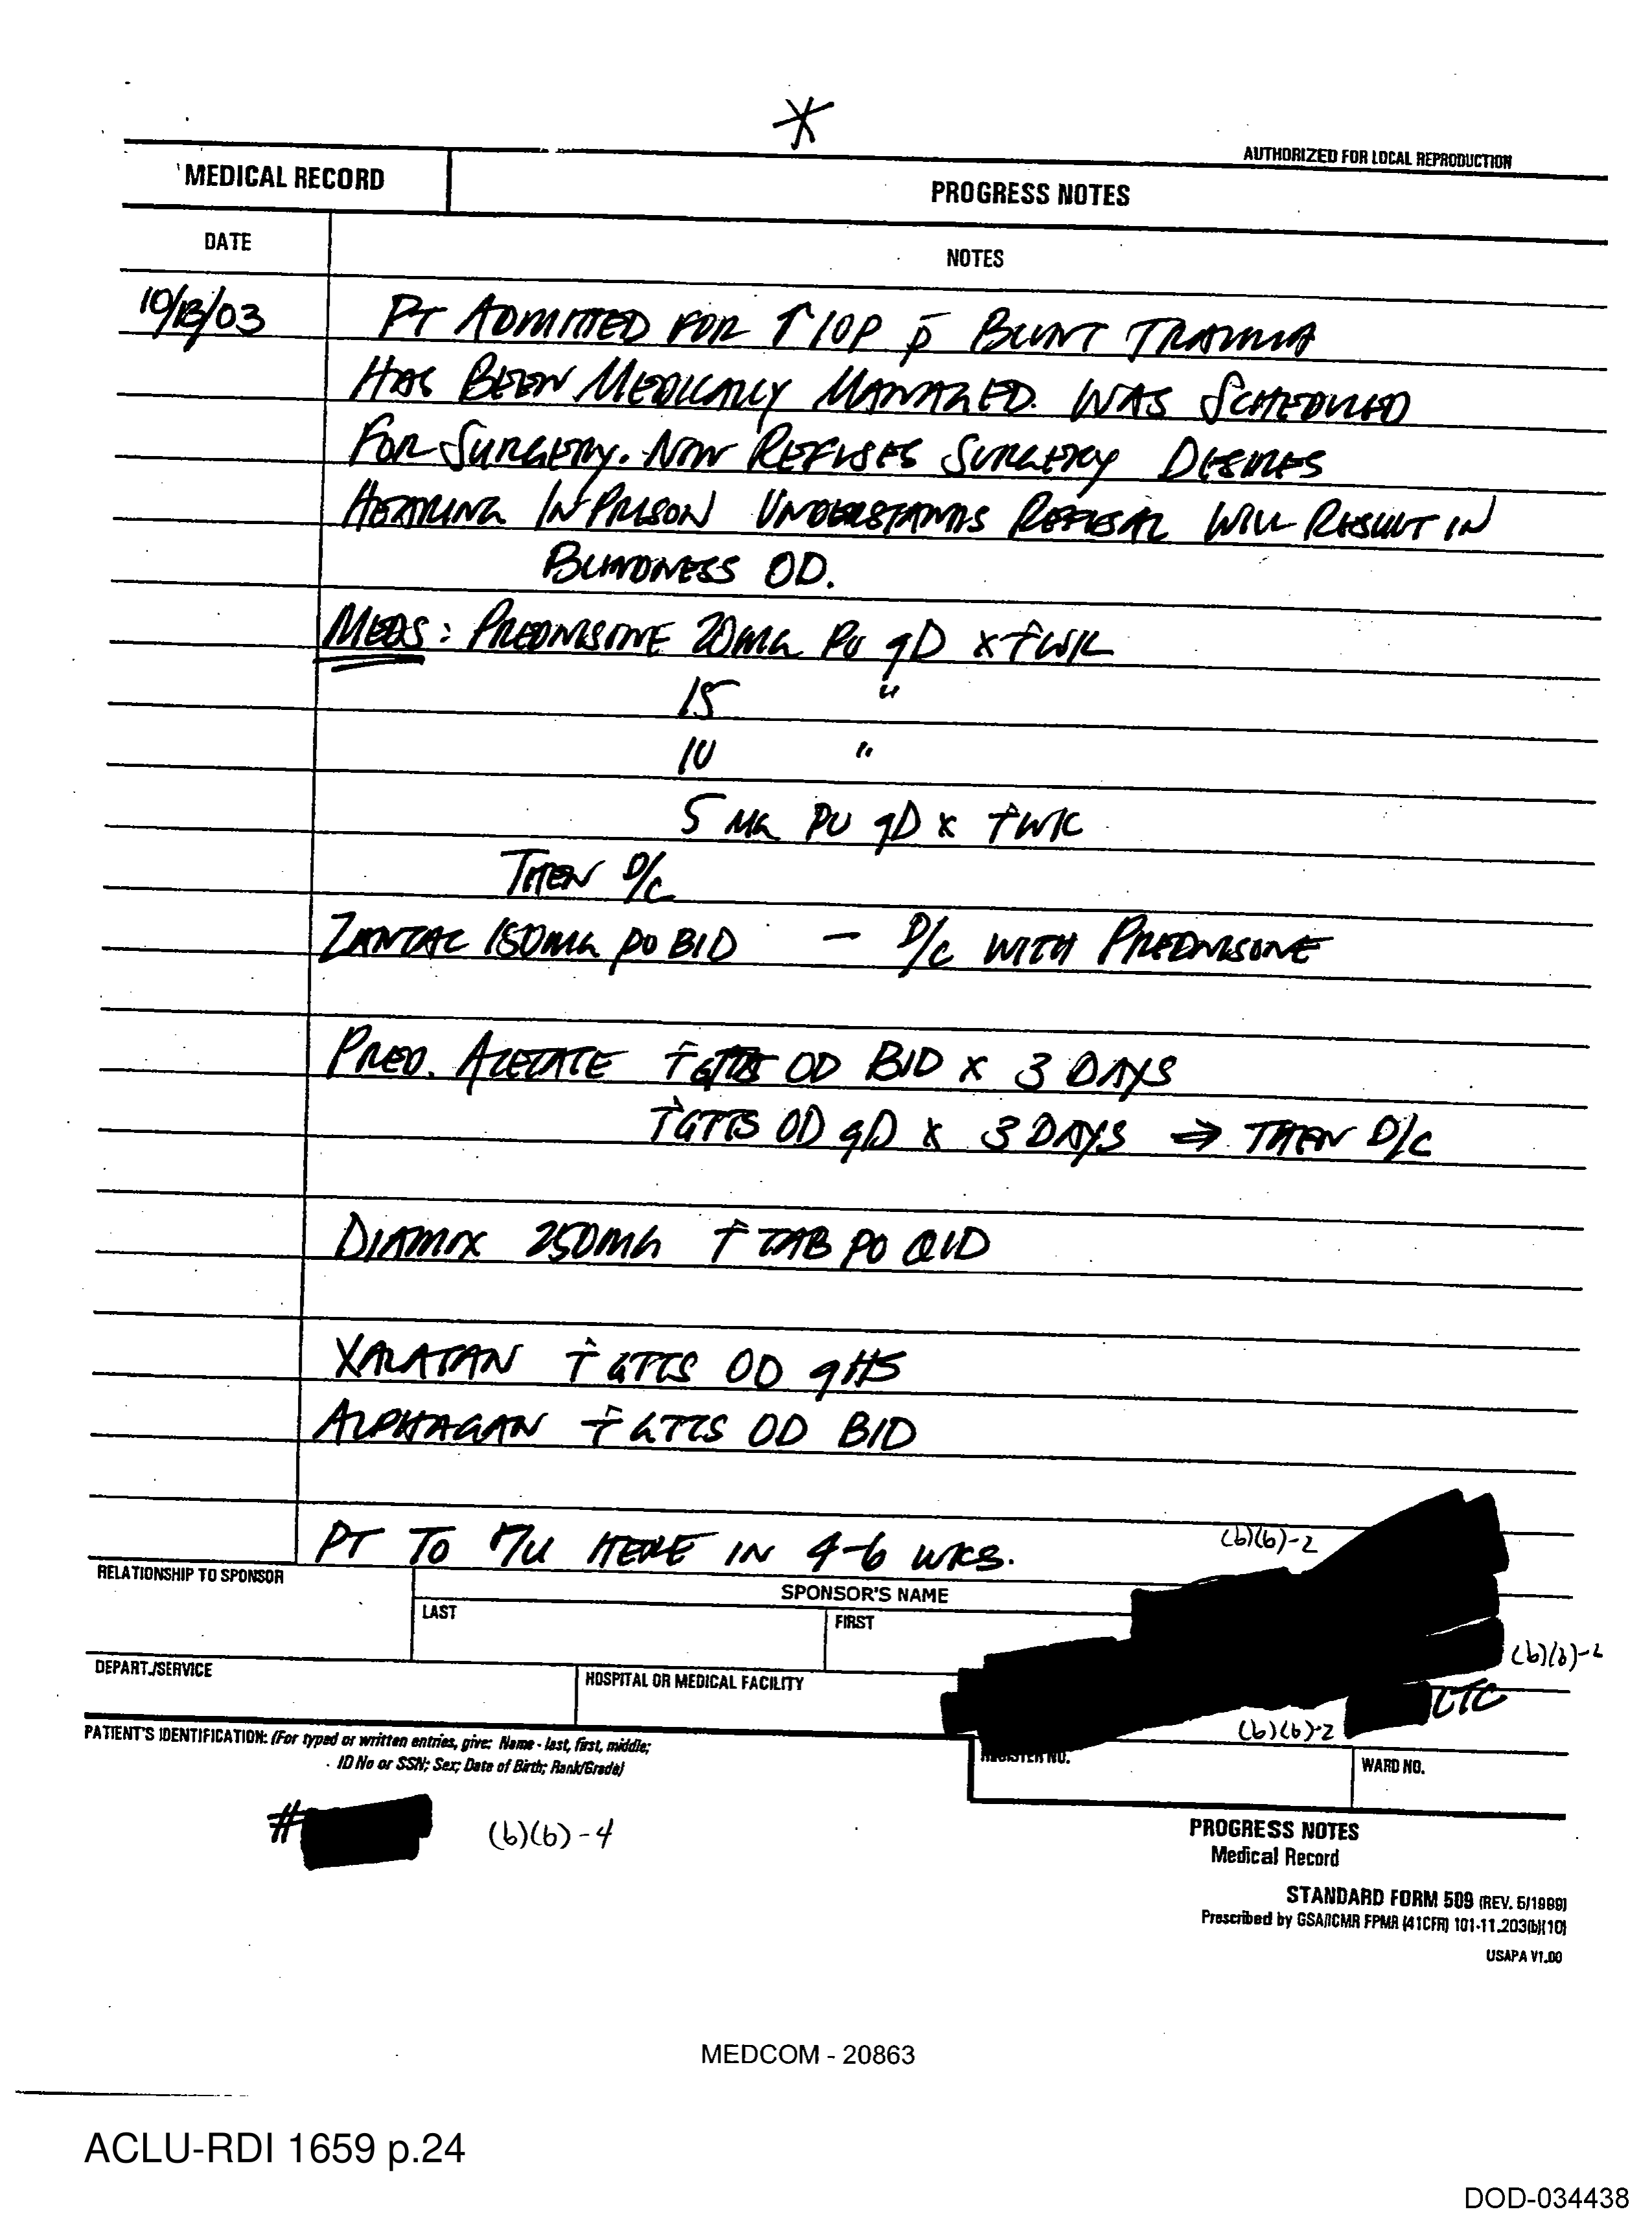 *
AUTHORIZED FOR LOCAL REPRODUCTION
MEDICAL RECORD
PROGRESS NOTES
DATE
NOTES
10/13/03
PT ADMITTED FOR ↑ IOP p̄ BLUNT TRAUMA
HAS BEEN MEDICALLY MANAGED. WAS SCHEDULED
FOR SURGERY. NOW REFUSES SURGERY DESIRES
HEARING IN PRISON UNDERSTANDS REFUSAL WILL RESULT IN
BLINDNESS OD.
MEDS: PREDNISONE 20MG PO qD x † WK
15 "
10 "
5 MG PO qD x † WK
THEN D/C
ZANTAC 150MG PO BID – D/C WITH PREDNISONE
PRED. ACETATE † GTTS OD BID x 3 DAYS
† GTTS OD qD x 3 DAYS ⇒ THEN D/C
DIAMOX 250MG † TAB PO QID
XALATAN † GTTS OD qHS
ALPHAGAN † GTTS OD BID
PT TO F/U HERE IN 4-6 WKS.
(b)(6)-2
RELATIONSHIP TO SPONSOR
SPONSOR'S NAME
LAST
FIRST
(b)(6)-2
DEPART./SERVICE
HOSPITAL OR MEDICAL FACILITY
LTC
(b)(6)-2
PATIENT'S IDENTIFICATION: (For typed or written entries, give: Name - last, first, middle;
ID No or SSN; Sex; Date of Birth; Rank/Grade)
REGISTER NO.
WARD NO.
#
(b)(6)-4
PROGRESS NOTES
Medical Record
STANDARD FORM 509 (REV. 5/1999)
Prescribed by GSA/ICMR FPMR (41CFR) 101-11.203(b)(10)
USAPA V1.00
MEDCOM - 20863
ACLU-RDI 1659 p.24
DOD-034438